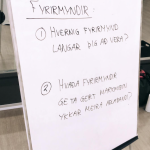 FYRIRMYNDIR:
① HVERNIG FYRIRMYND
LANGAR ÞIG AÐ VERA?
② HVAÐA FYRIRMYNDIR
GETA GERT MARKMIÐIN
YKKAR